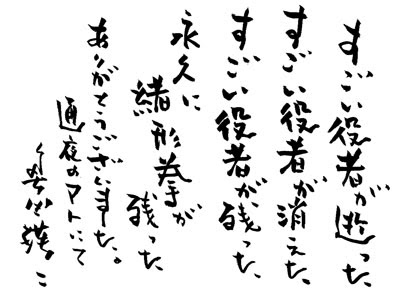 すごい役者が逝った
すごい役者が消えた
すごい役者が残った
永久に
緒形拳が
残った
ありがとうございました。
通夜のアトにて